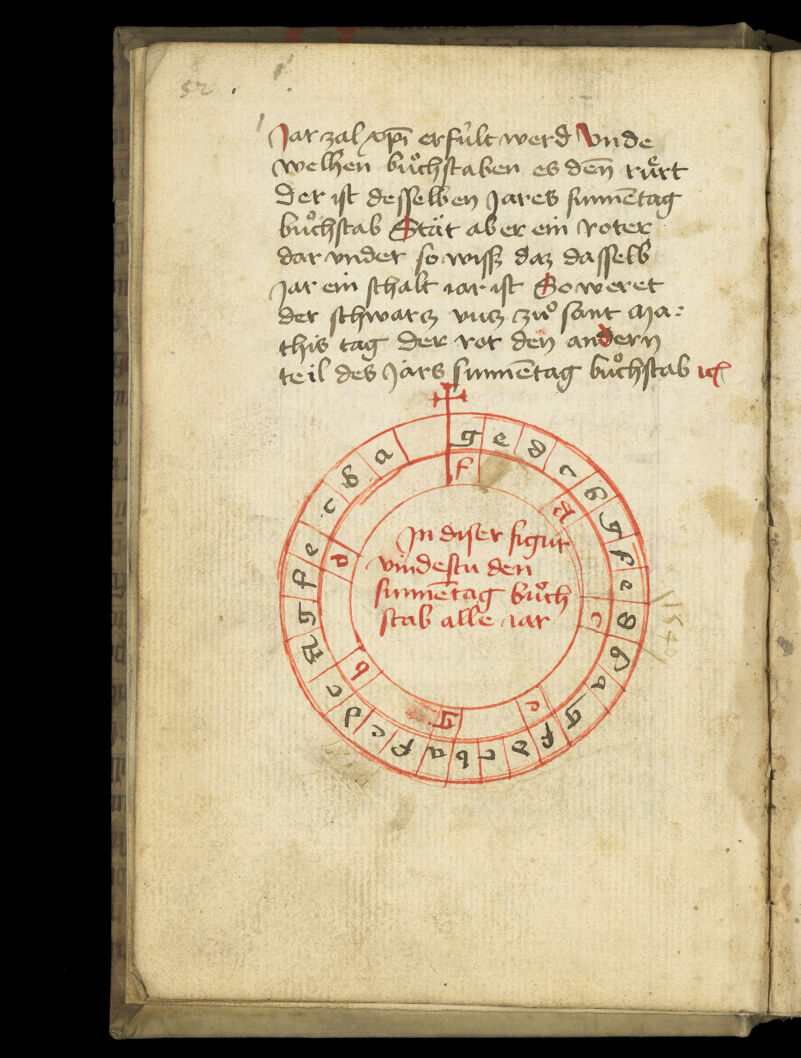 52
Jar zal xp̄i erfúlt werd Vnde
welhen bůchstaben es den̄ růrt
Der ist desselben Jares sunnētag
bůchstab Stät aber ein roter
dar vnder so wiss daz dasselb
Jar ein schalt iar ist So weret
der schwarcz vncz zů sant Ma:
this tag Der rot den andern
teil des Jars sunnētag bůchstab
g e d c b g f e d b a g f d c b a f e d c A g f e c b a
f d c e g b d
In diser figur
vindestu den
sunnētag bůch
stab alle iar
1540